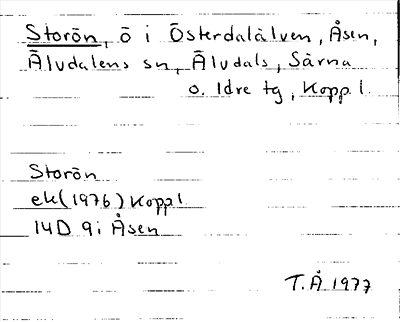 Storön, ö i Österdalälven, Åsen,
Älvdalens sn, Älvdals, Särna
o. Idre tg, Koppl.
Storön
ek (1976) Koppl
14D 9i Åsen
T.Å 1977